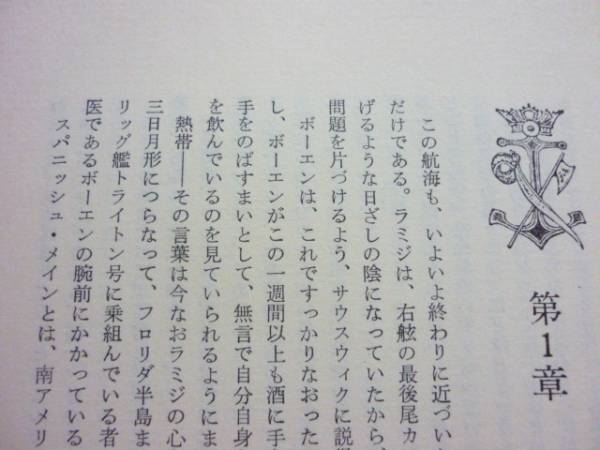 第1章
この航海も、いよいよ終わりに近づい
だけである。ラミジは、右舷の最後尾カ
げるような日ざしの陰になっていたから、
問題を片づけるよう、サウスウィクに説
ボーエンは、これですっかりなおった
し、ボーエンがこの一週間以上も酒に手
手をのばすまいとして、無言で自分自身
を飲んでいるのを見ていられるようにま
熱帯――その言葉は今なおラミジの心
三日月形につらなって、フロリダ半島ま
リッグ艦トライトン号に乗組んでいる者
医であるボーエンの腕前にかかっている
スパニッシュ・メインとは、南アメリ